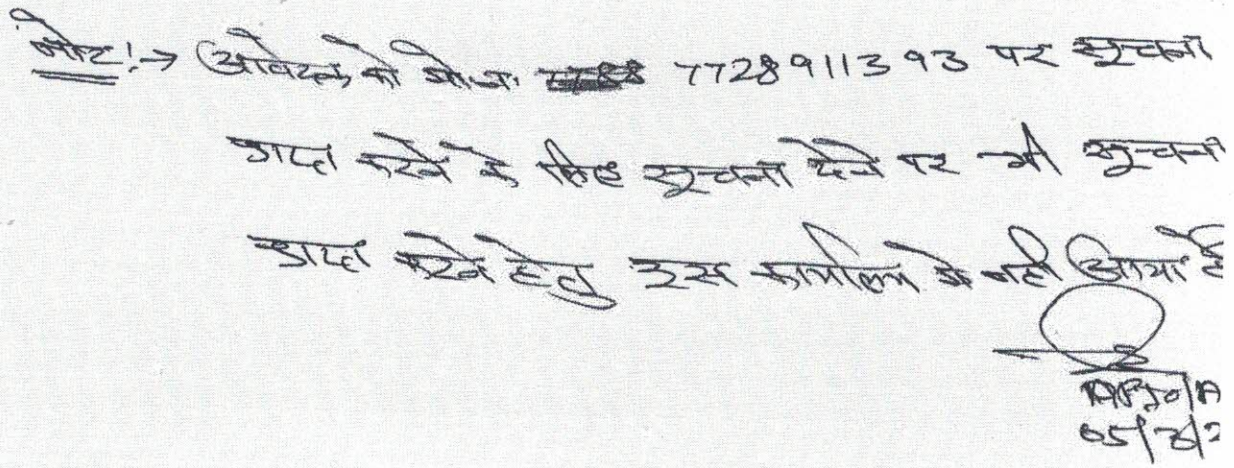 नोट!→ आवेदक को मो.न. 7728911393 पर सूचना
प्राप्त करने के लिए सूचना देने पर भी सूचना
प्राप्त करने हेतु इस कार्यालय मे नही आया है
05/3/2